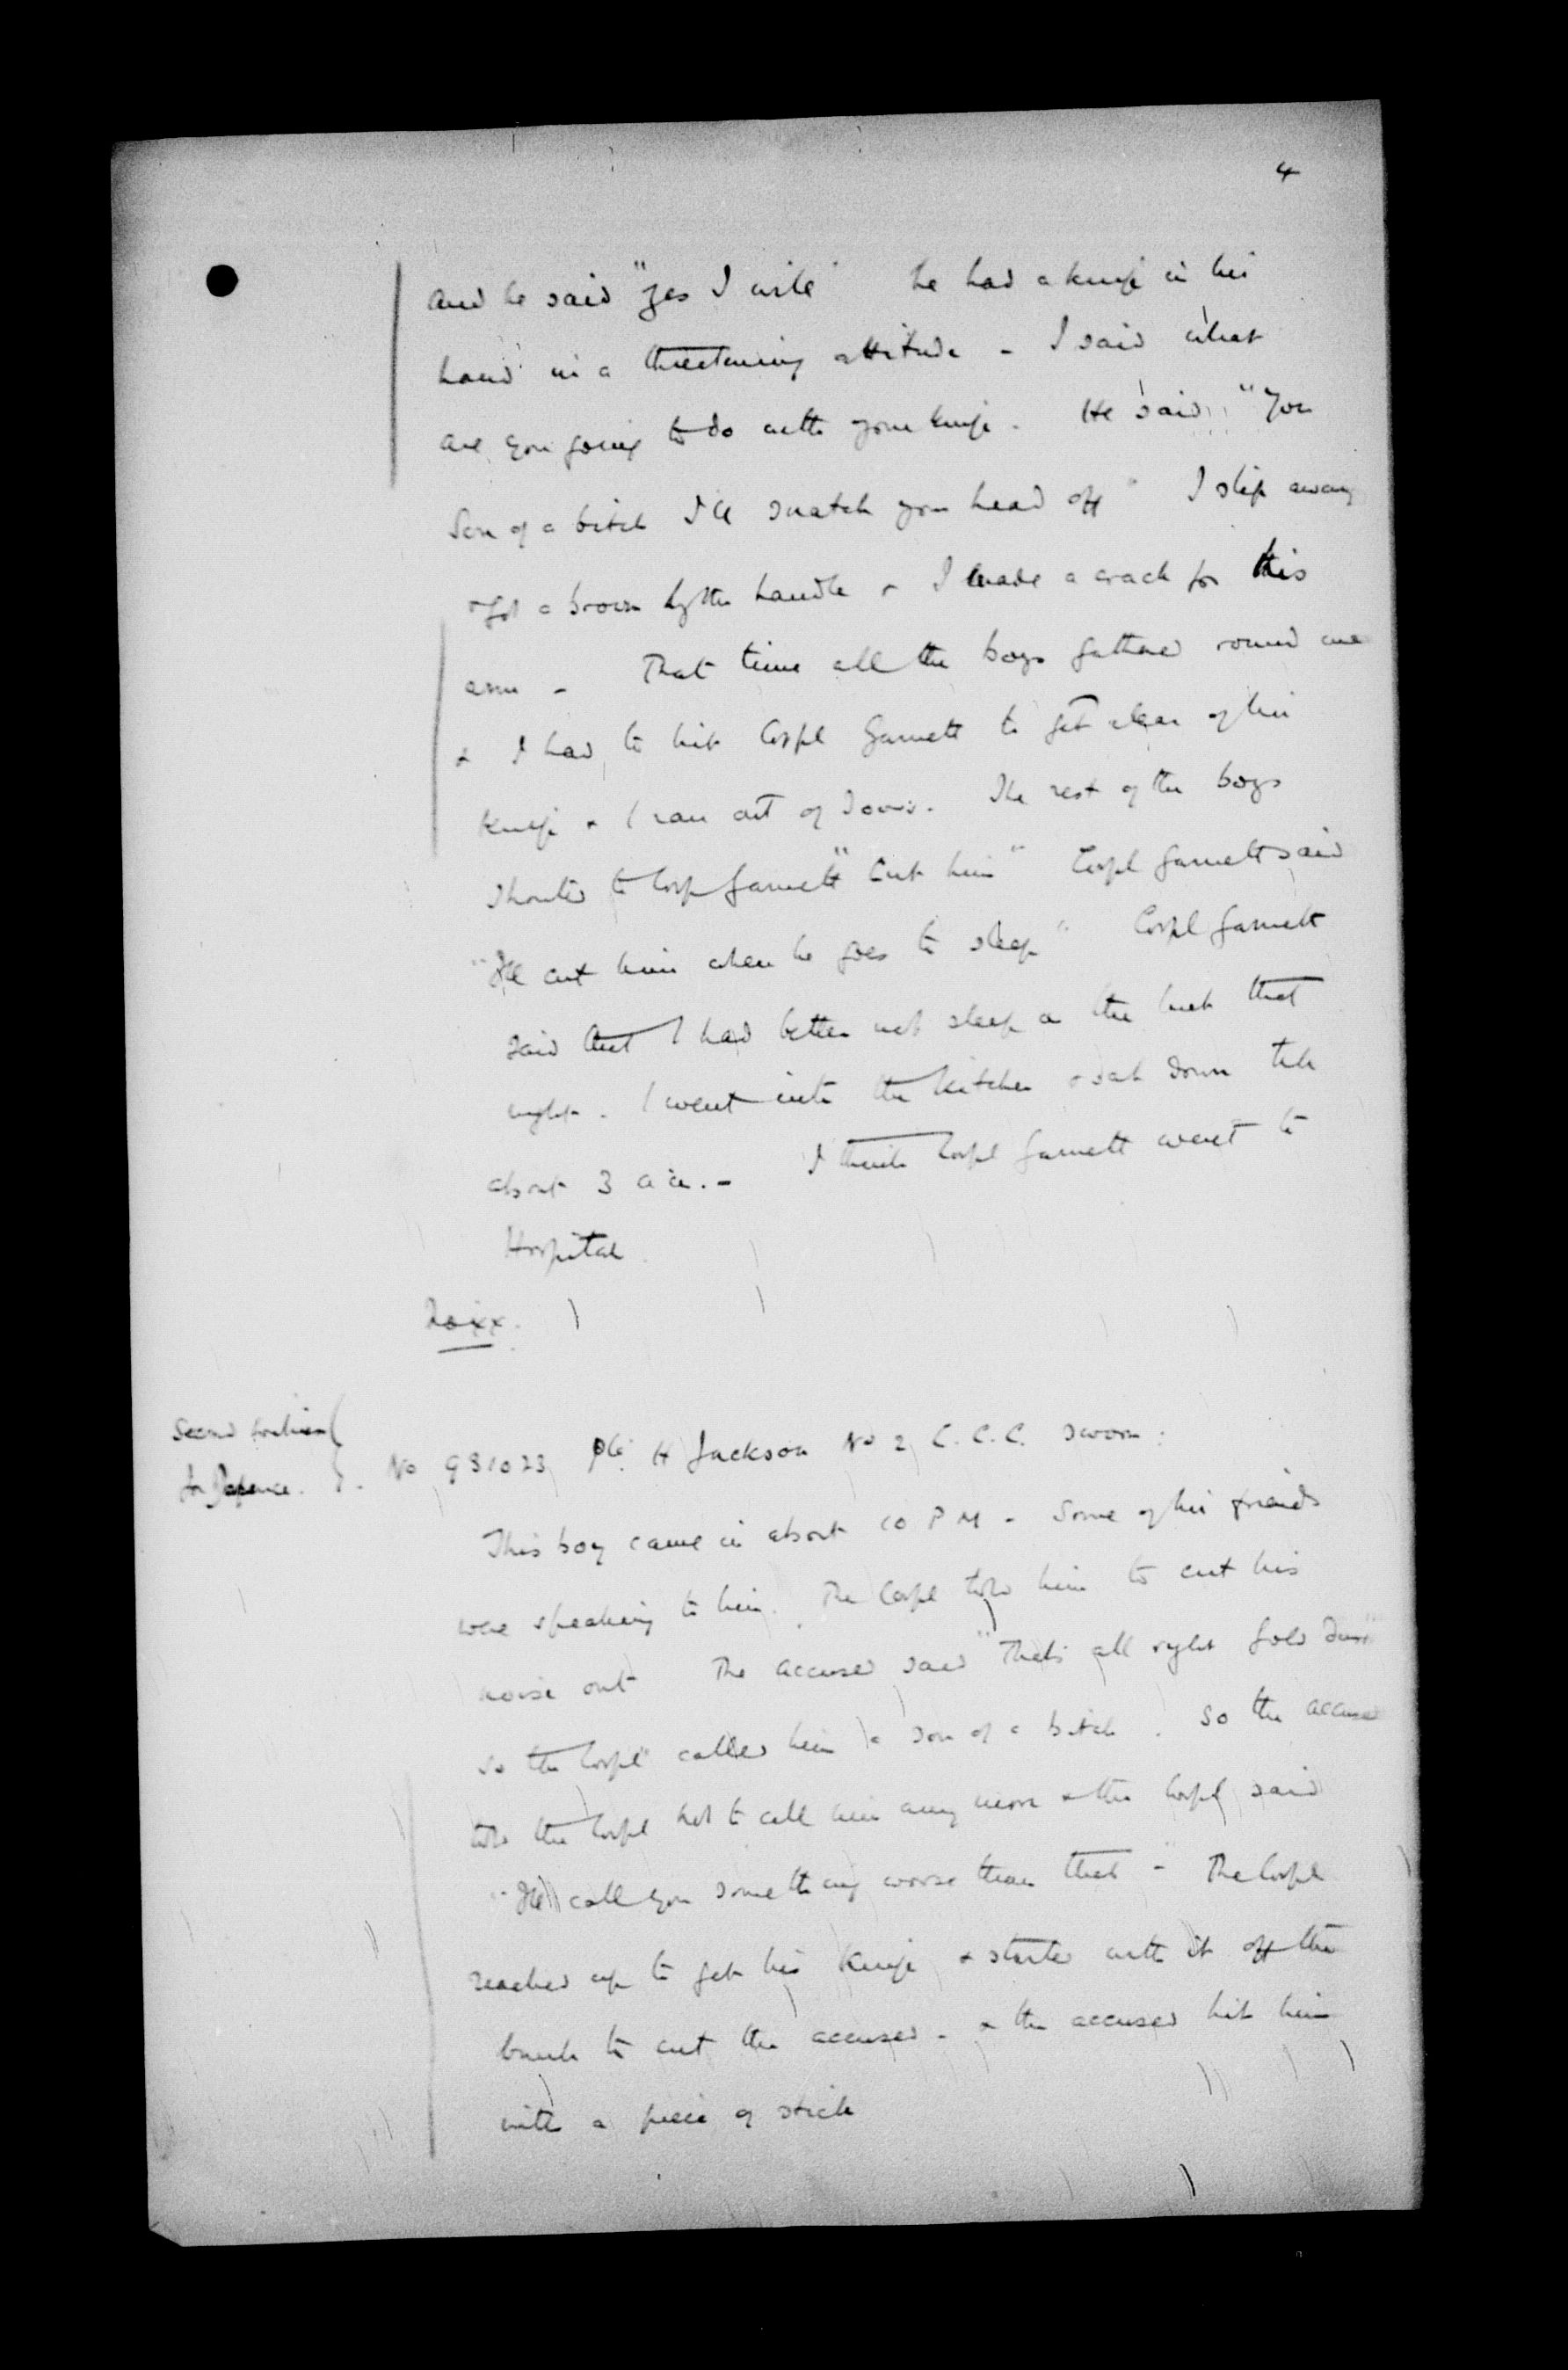 4
and he said "yes I will" he had a knife in his
hand in a threatening attitude - I said what
are you going to do with your knife. He said "You
Son of a bitch I'll snatch you head off" I slip away
& got a broom by the handle & I made a crack for this
arm - That time all the boys gathered round me
& I had to hit Corpl Garnett to get clear of his
knife & I ran out of doors. The rest of the boys
shouted to Corp Garnett "Cut him" Corpl Garnett said
"I'll cut him when he goes to sleep" Corpl Garnett
said that I had better not sleep in the hut that
night. I went into the kitchen & sat down till
about 3 a.m. - I think Corpl Garnett went to
Hospital.
No xx.
Second witness
for Defence. No 931023 Pte. H Jackson No 2 C.C.C. sworn:
This boy came in about 10 PM - Some of his friends
were speaking to him. The Corpl told him to cut his
noise out The accused said "That's all right Gold Dust"
so the Corpl called him a son of a bitch. So the accused
told the Corpl not to call him any more & the Corpl said
"I'll call you something worse than that -" The Corpl
reached up to get his knife & started with it off the
bunk to cut the accused - & the accused hit him
with a piece of stick